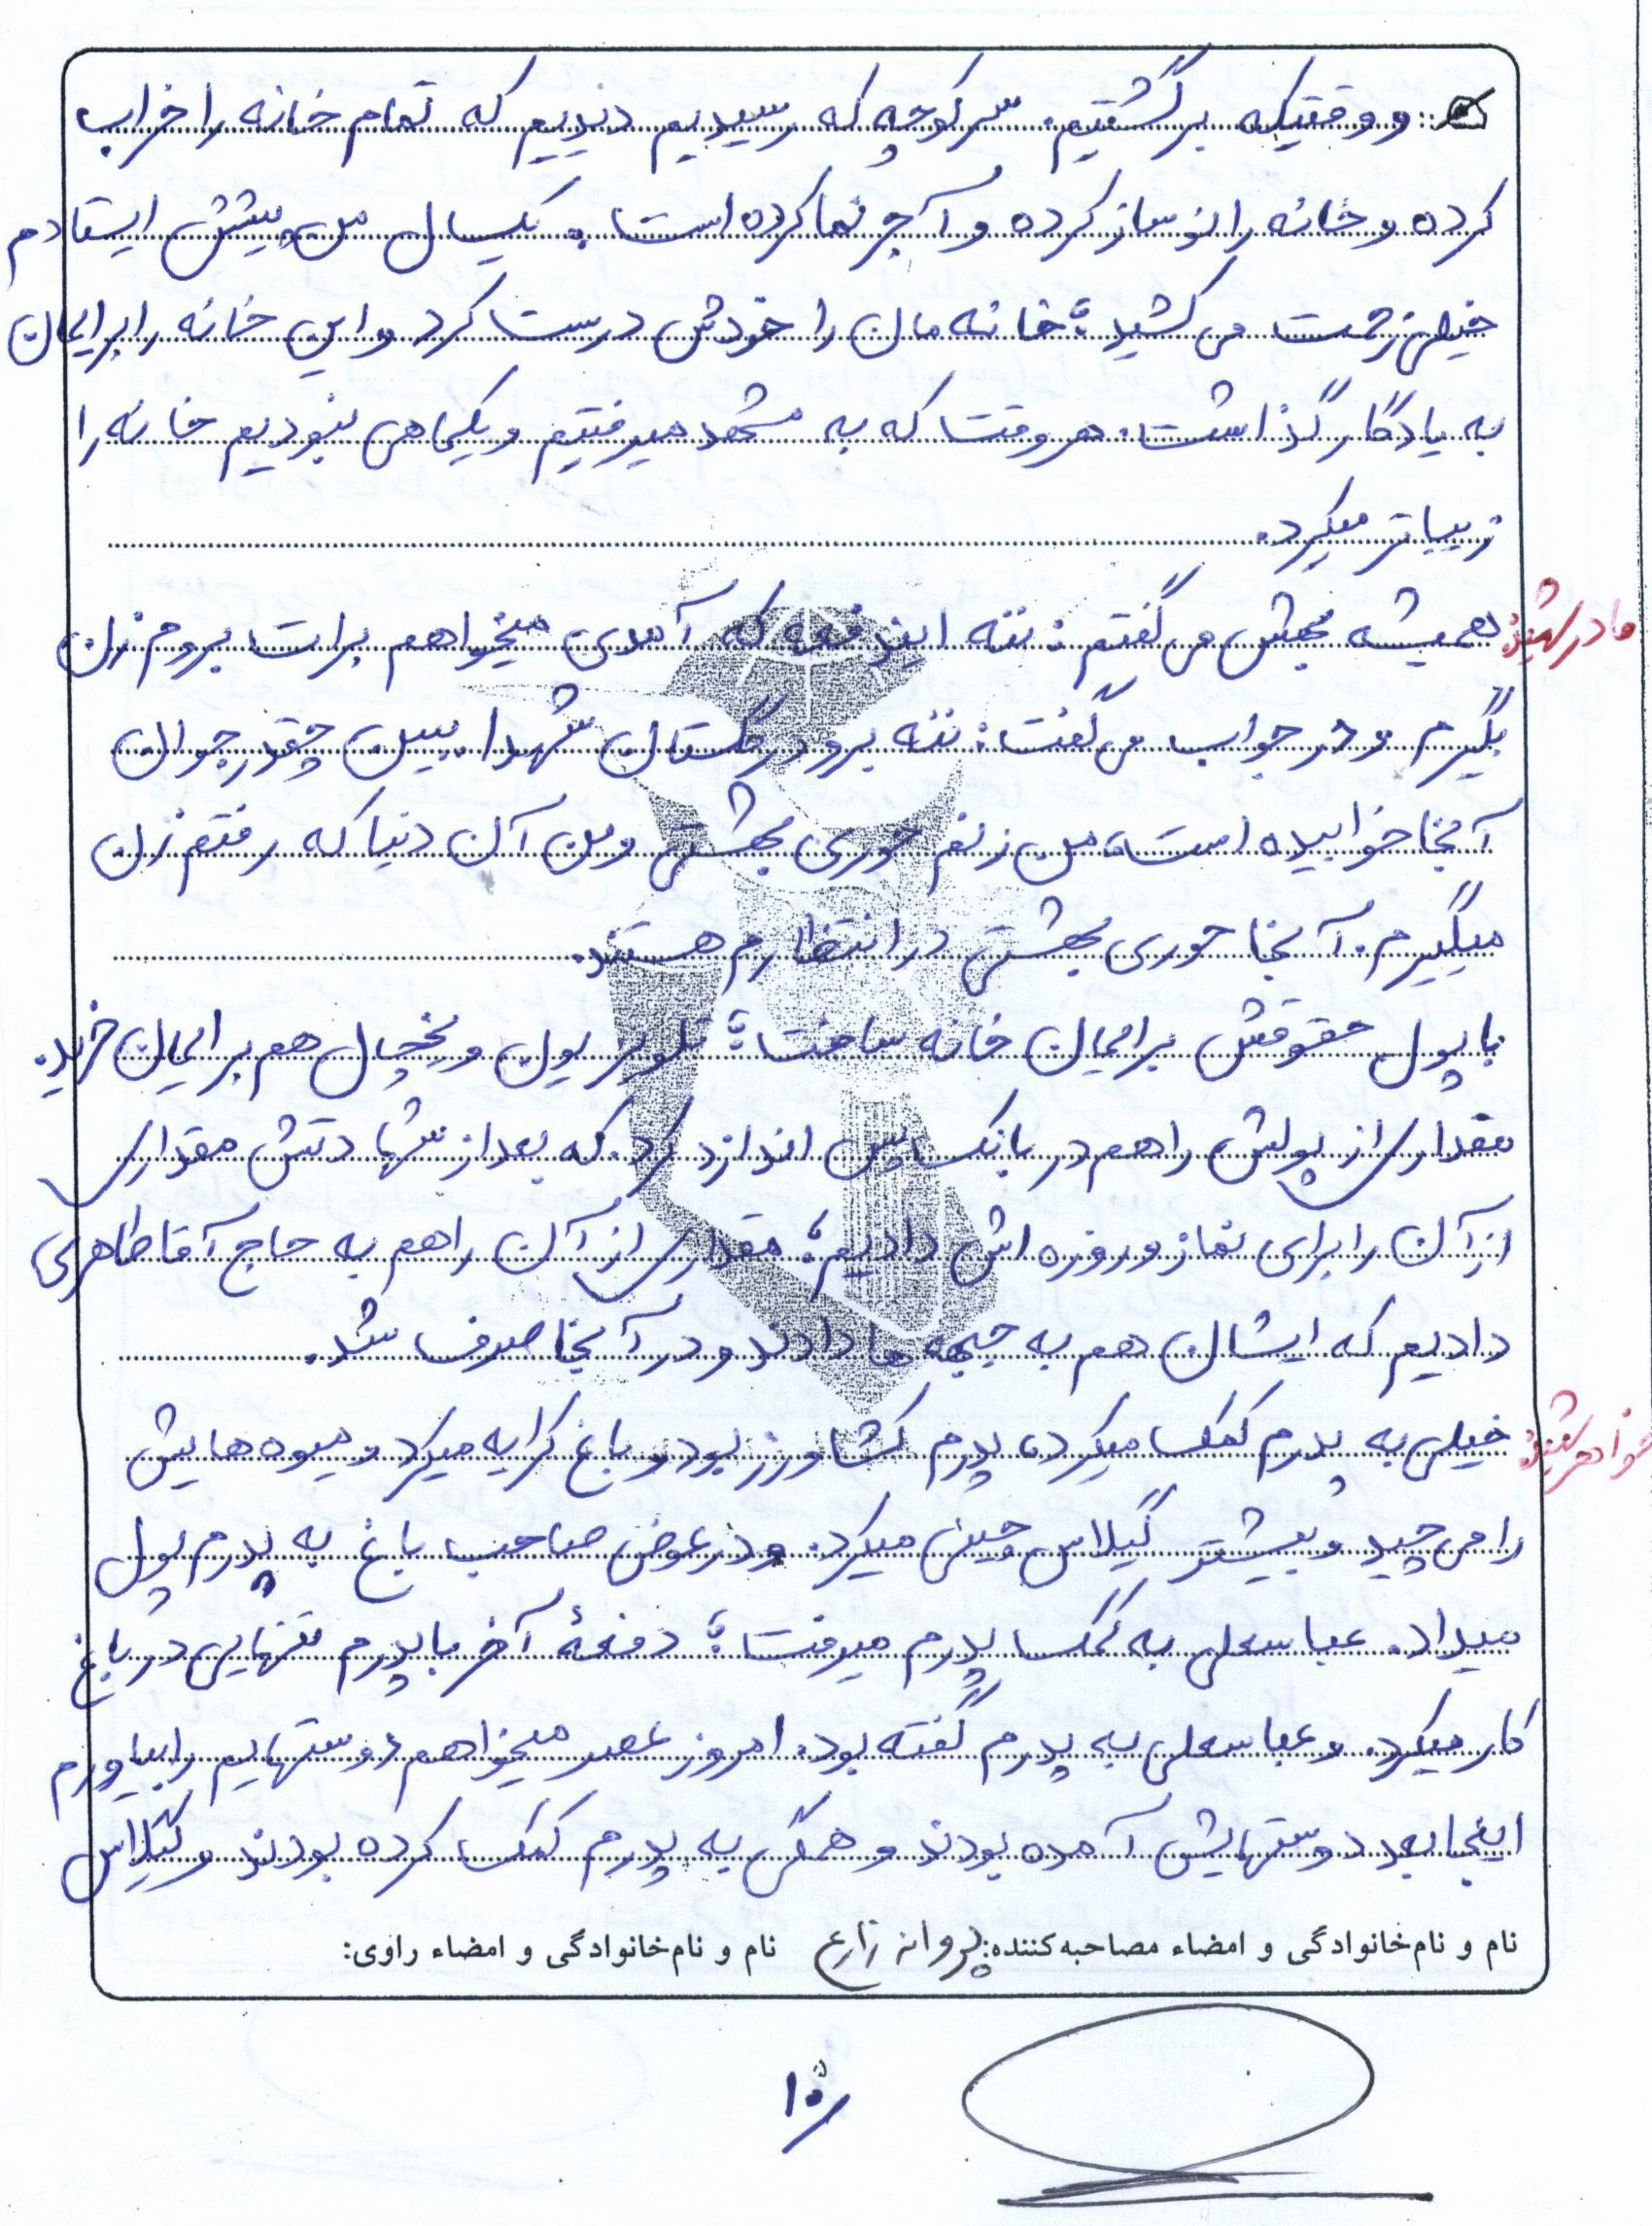 و وقتیکه برگشتیم. سر کوچه که رسیدیم دیدیم که تمام خانه را خراب
کرده و خانه را نوساز کرده و آجر نما کرده است. یکسال من پیشش ایستادم
خیلی زحمت می کشید؛ خانه مان را خودش درست کرد و این خانه را برایمان
به یادگار گذاشت. هر وقت که به مشهد میرفتیم و یکماهی نبودیم خانه را
زیباتر میکرد.
مادر شهید: همیشه بهش می گفتم: ننه ایندفعه که آمدی میخواهم برات بروم زن
بگیرم و در جواب می گفت: ننه برو در گلستان شهدا ببین چقدر جوان
آنجا خوابیده است، من زنم حوری بهشتی و من آن دنیا که رفتم زن
میگیرم. آنجا حوری بهشتی در انتظارم هستند.
با پول حقوقش برایمان خانه ساخت؛ تلویزیون و یخچال هم برایمان خرید.
مقداری از پولش را هم در بانک پس اندازد کرد. که بعد از شهادتش مقداری
از آن را برای نماز و روزه اش دادیم؛ مقداری از آن را هم به حاج آقا طاهری
دادیم که ایشان هم به جبهه ها دادند و در آنجا صرف شد.
خواهر شهید: خیلی به پدرم کمک میکرد، پدرم کشاورز بود و باغ کرایه میکرد و میوه هایش
را می چید و بیشتر گیلاس چینی میکرد. و در عوض صاحب باغ به پدرم پول
میداد. عباسعلی به کمک پدرم میرفت؛ دفعهٔ آخر با پدرم تنهایی در باغ
کار میکرد. و عباسعلی به پدرم گفته بود. امروز عصر میخواهم دوستهایم را بیاورم
اینجا بعد دوستهایش آمده بودند و همگی به پدرم کمک کرده بودند و گیلاس
نام و نام‌خانوادگی و امضاء مصاحبه‌کننده: پروانه زارع نام و نام‌خانوادگی و امضاء راوی:
۱۰